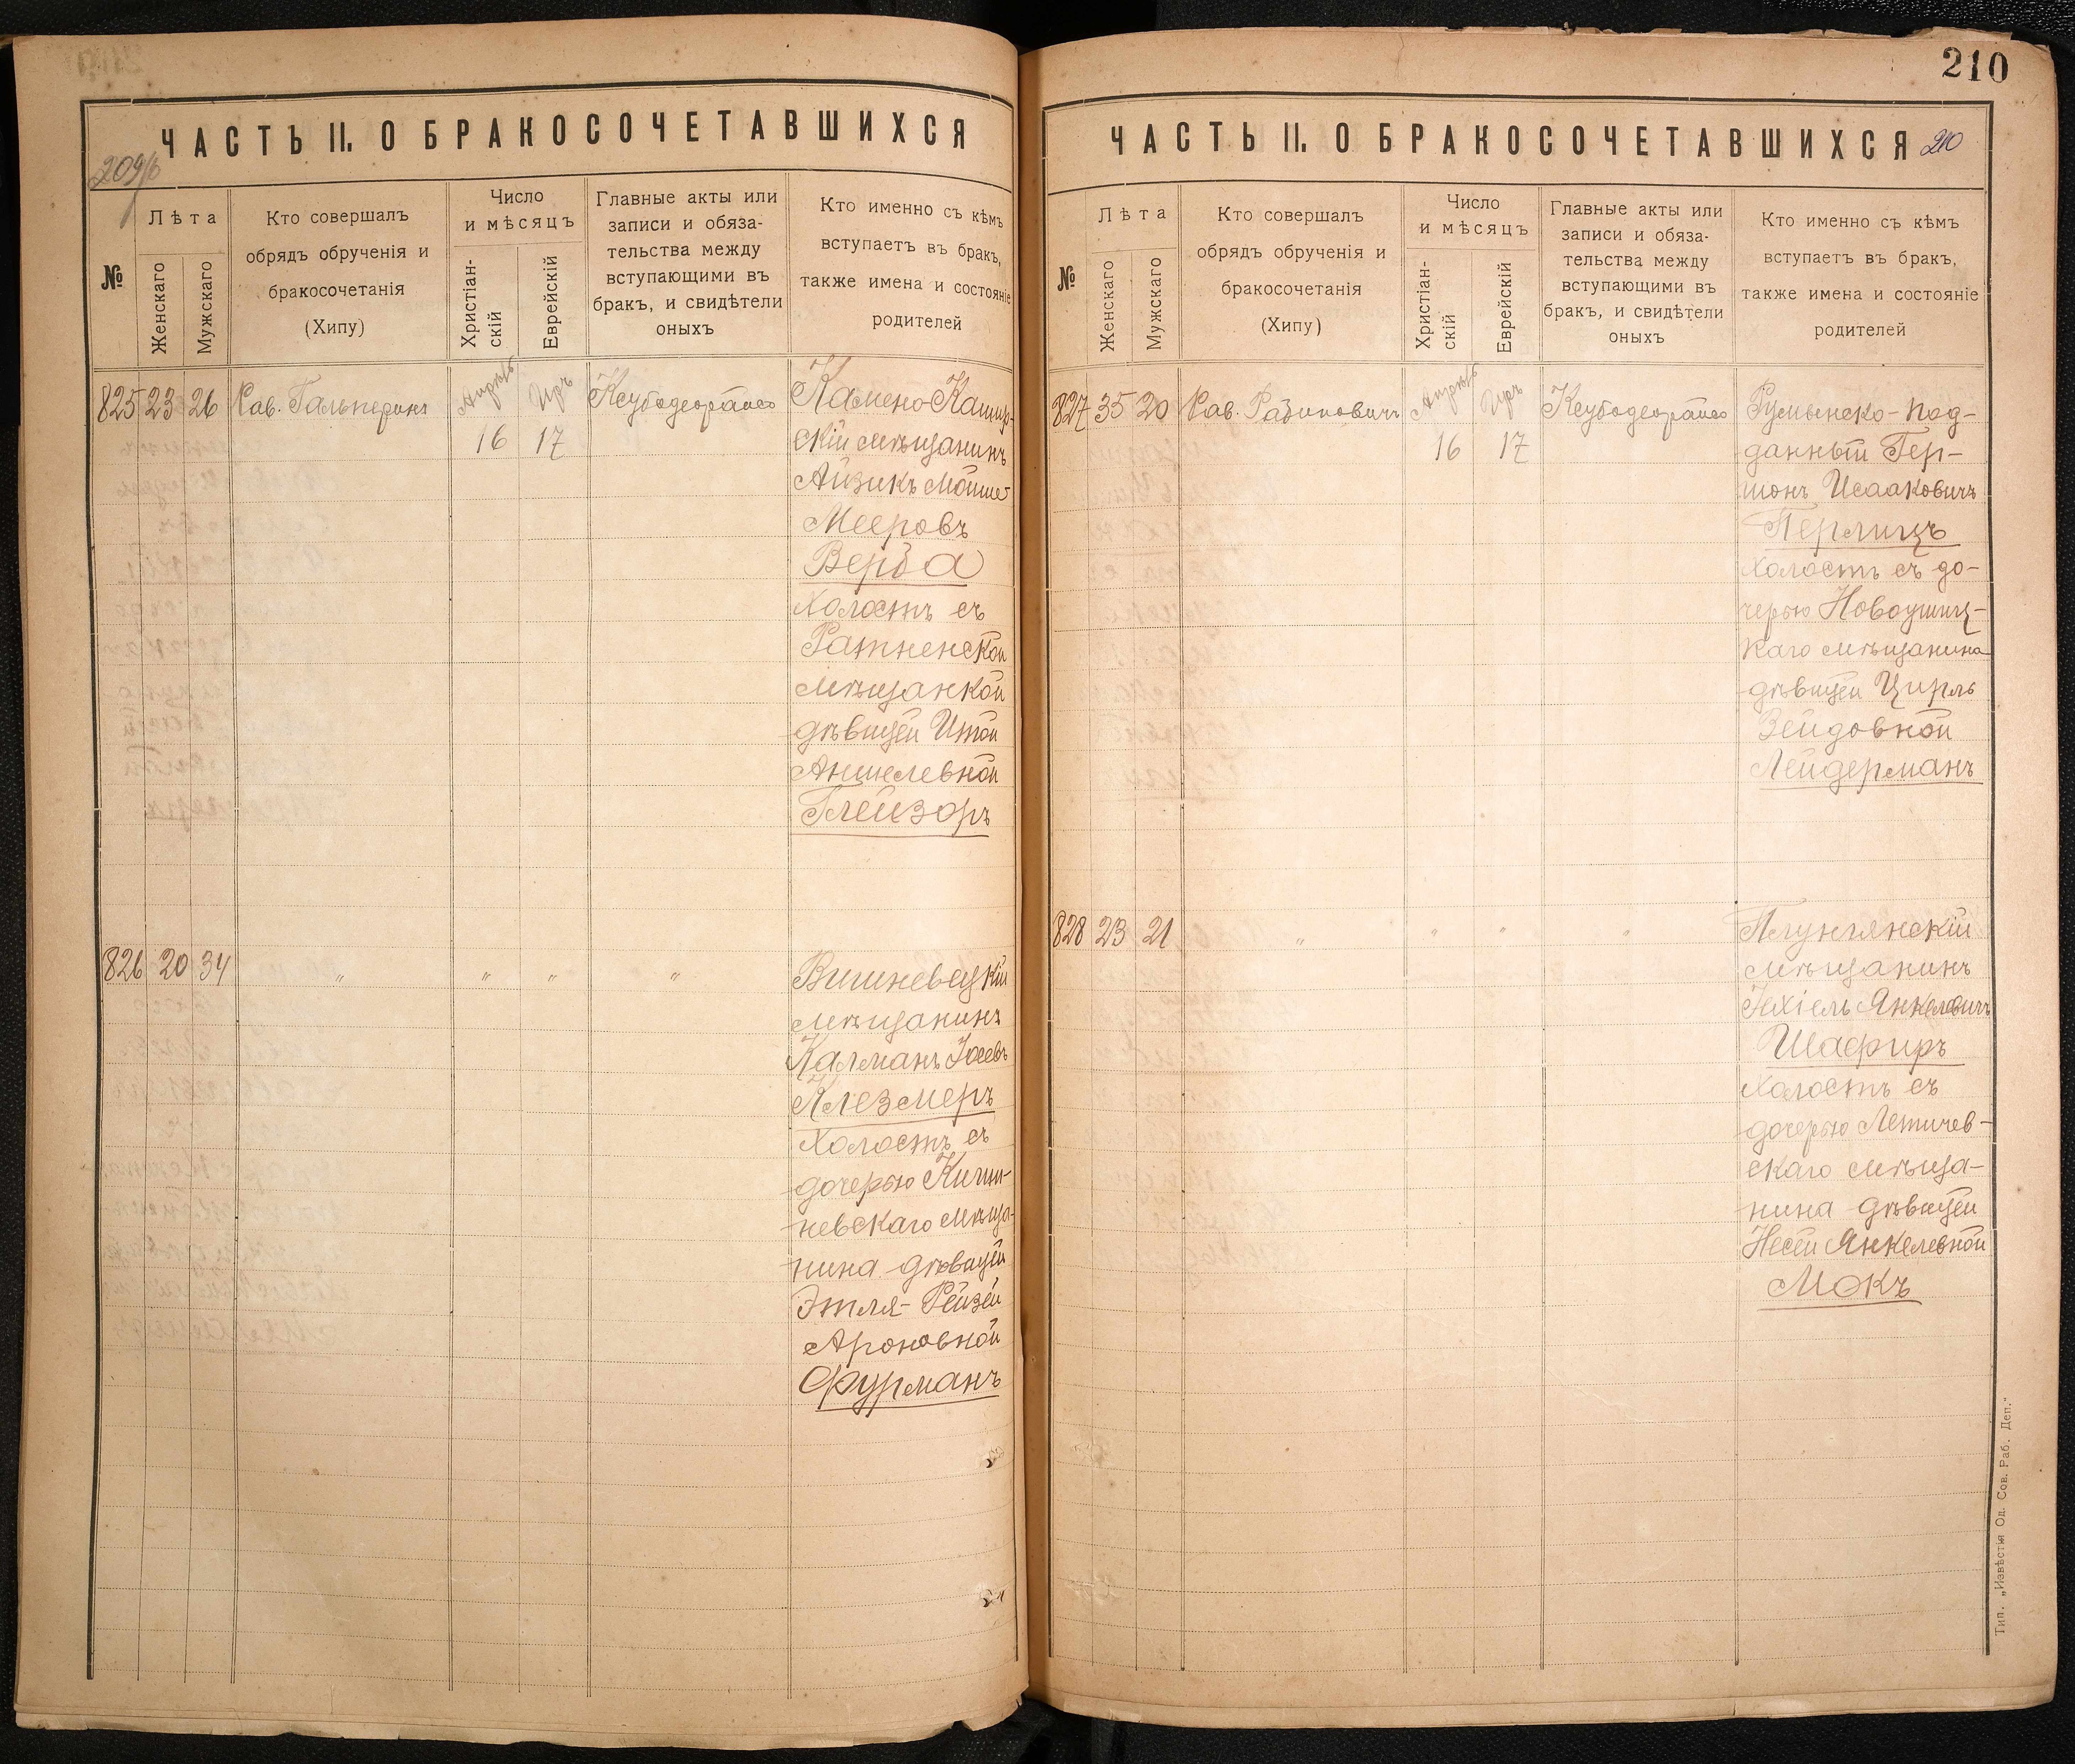 ЧАСТЬ II. О БРАКОСОЧЕТАВШИХСЯ
209/б
№
Лѣта
Женскаго
Мужскаго
Кто совершалъ
обрядъ обрученія и
бракосочетанія
(Хипу)
Число
и мѣсяцъ
Христіан-
скій
Еврейскій
Главные акты или
записи и обяза-
тельства между
вступающими въ
бракъ, и свидѣтели
оныхъ
Кто именно съ кѣмъ
вступаетъ въ бракъ,
также имена и состояніе
родителей
825 23 26 Рав. Гальперинъ Апрѣль Иръ Ксубодеорайсо Камено-Кашир-
16 17 скій мѣщанинъ
Айзикъ Мойше-
Мееровъ
Верба
холостъ съ
Ратненской
мѣщанкой
дѣвицей Итой
Аншелевной
Глейзоръ
826 20 34 " " " " Вишневецкій
мѣщанинъ
Калманъ Іосевъ
Клезмеръ
холостъ съ
дочерью Киши-
невскаго мѣща-
нина дѣвицей
Этля-Рейзей
Ароновной
Фурманъ
210
ЧАСТЬ II. О БРАКОСОЧЕТАВШИХСЯ 210
№
Лѣта
Женскаго
Мужскаго
Кто совершалъ
обрядъ обрученія и
бракосочетанія
(Хипу)
Число
и мѣсяцъ
Христіан-
скій
Еврейскій
Главные акты или
записи и обяза-
тельства между
вступающими въ
бракъ, и свидѣтели
оныхъ
Кто именно съ кѣмъ
вступаетъ въ бракъ,
также имена и состояніе
родителей
827 35 20 Рав. Рабиновичъ Апрѣль Иръ Ксубодеорайсо Румынско-под-
16 17 данный Гер-
шонъ Исааковичъ
Перлицъ
холостъ съ до-
черью Новоушиц-
каго мѣщанина
дѣвицей Цирль
Зейдовной
Лейдерманъ
828 23 21 " " " " Плунгянскій
мѣщанинъ
Іехіель Янкелевичъ
Шафиръ
холостъ съ
дочерью Летичев-
скаго мѣща-
нина дѣвицей
Несей Янкелевной
Мокъ
Тип. „Извѣстія Од. Сов. Раб. Деп.“